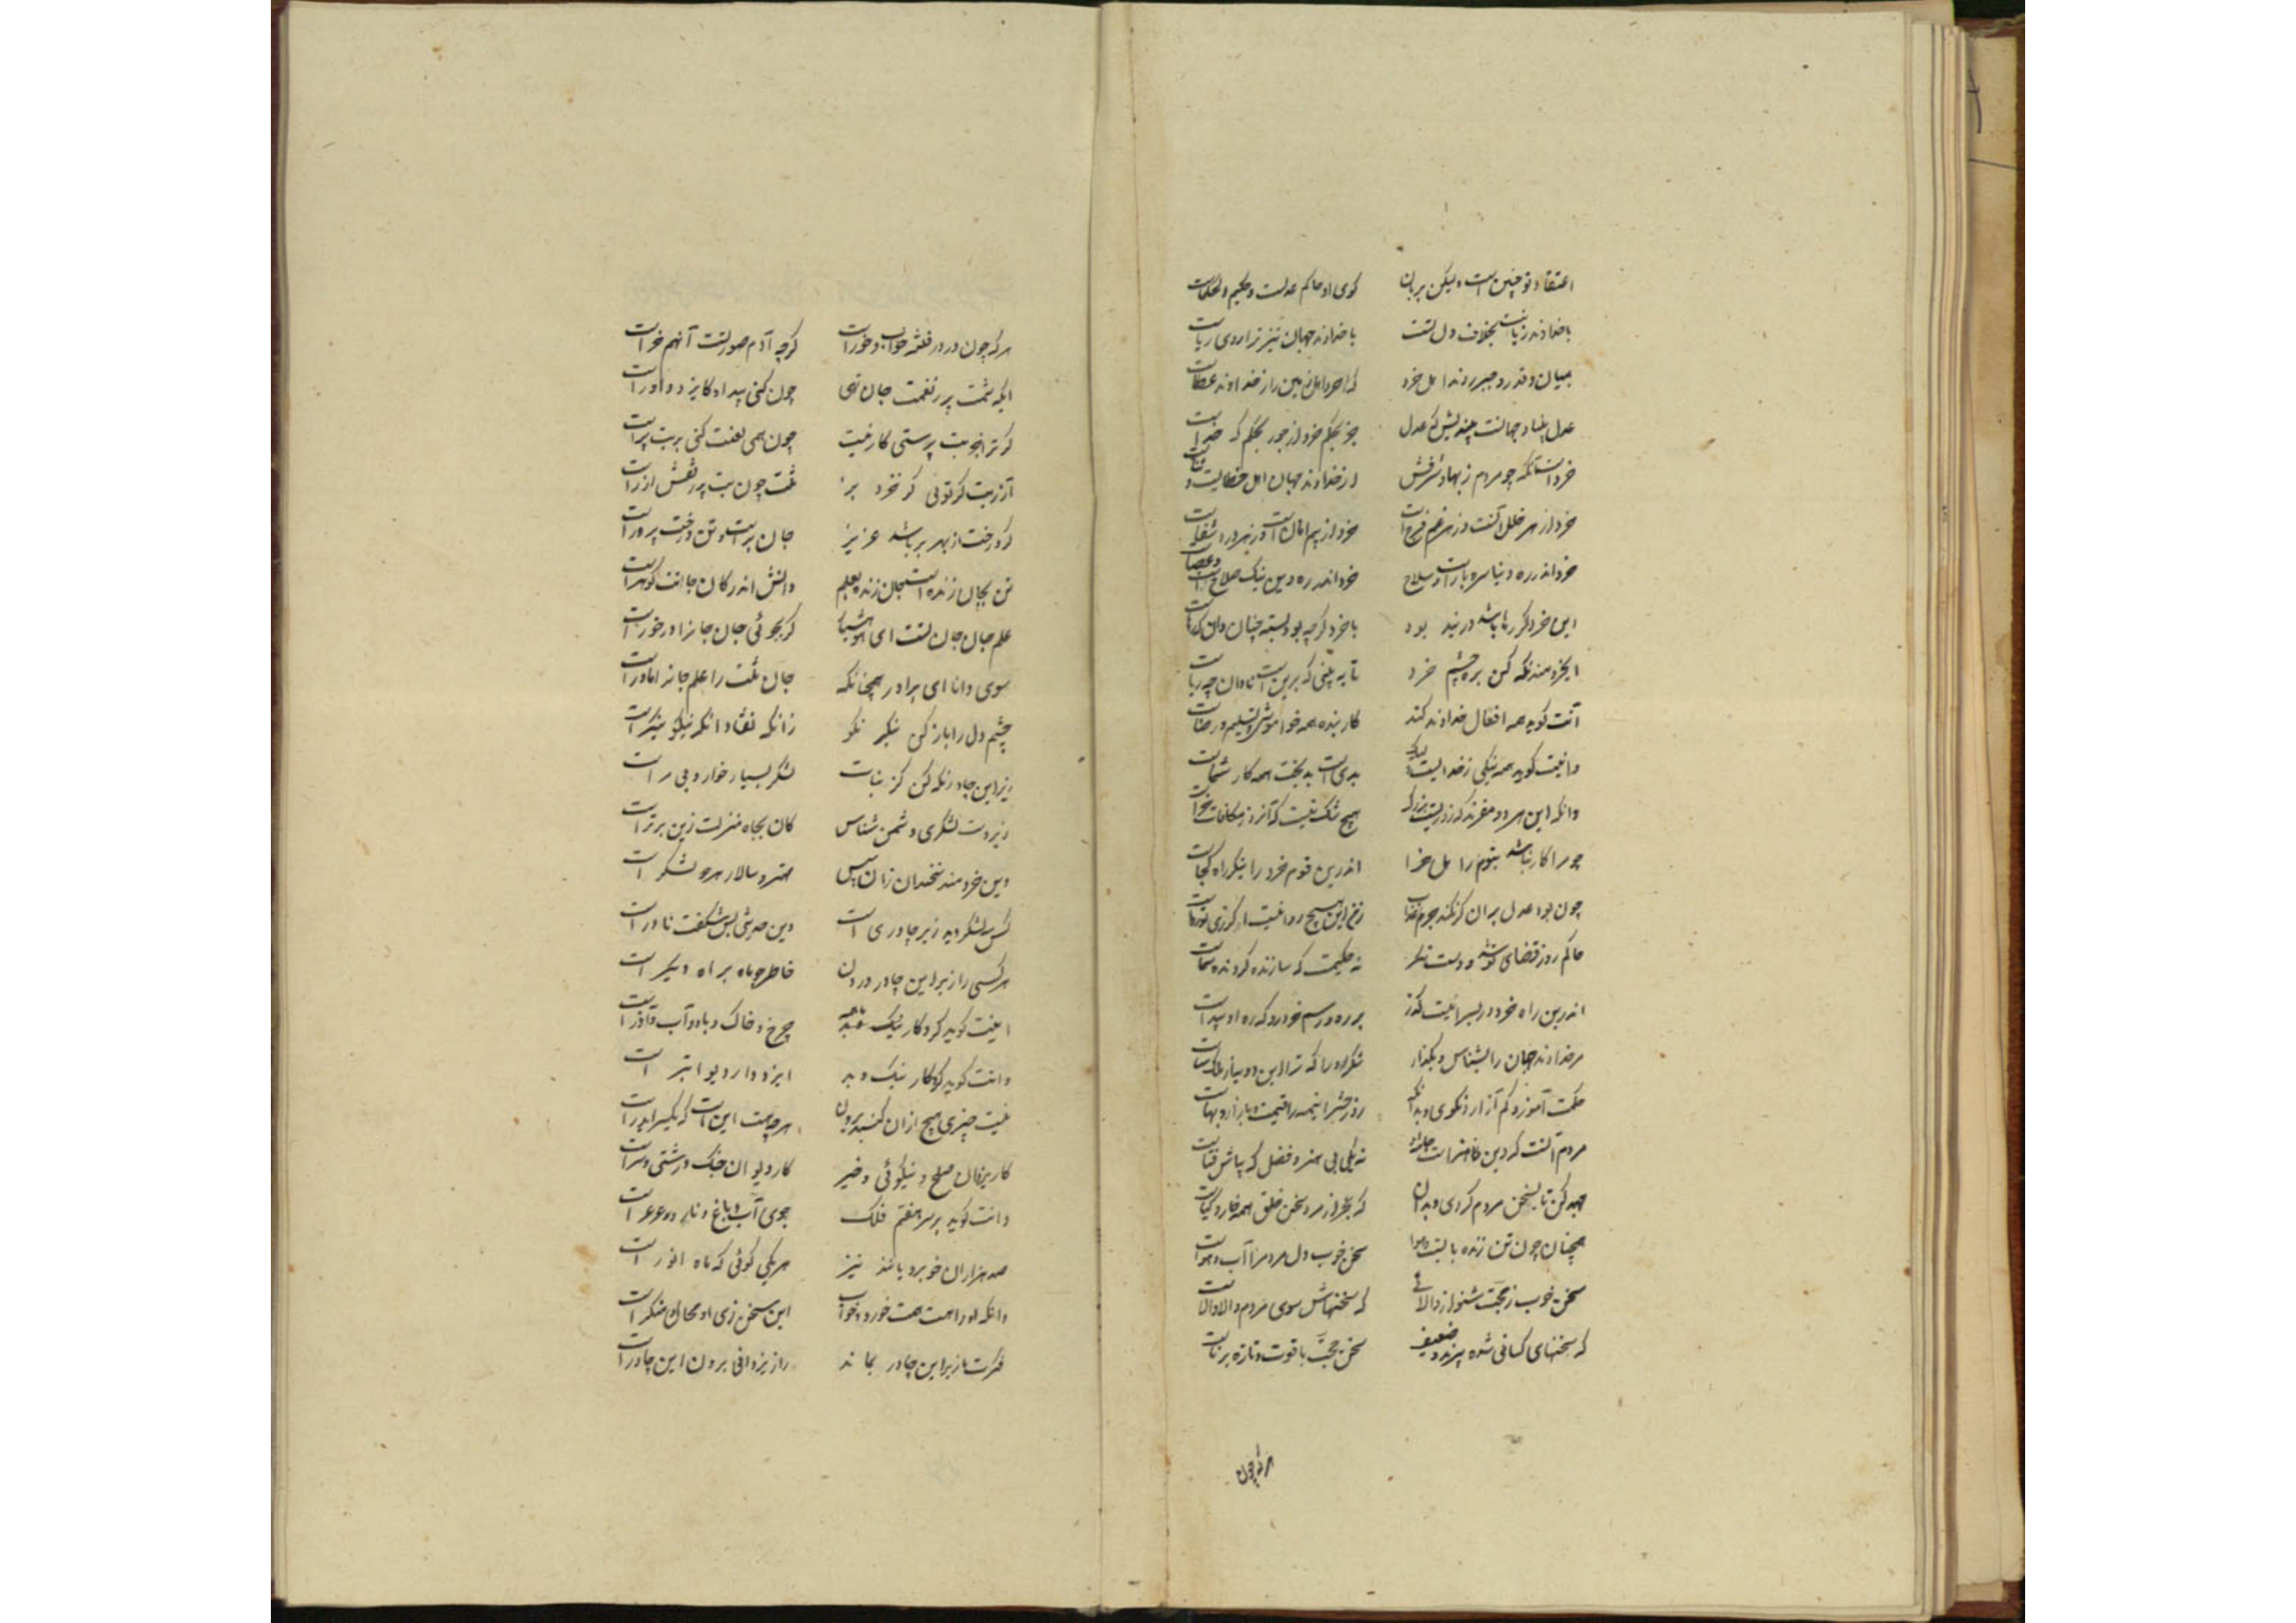 اعتقاد تو چنین است ولیکن بزبان گوی او حاکم عدلست و حکیم الحکماست
با خداوند زبانت بخلاف دل تست با خداوند جهان نیز ترا روی ریاست
بمیان قدر و جبر روند اهل خرد
عدل بنیاد جهانست بیندیش که عدل جز بحکم خرد از جور بحکم که جداست
خرد است آنکه چو مردم ز بها و شرفش از خداوند جهان اهل خطابست و ثناست
خرد از هر خللی آنست و ز هر غم فرج است خرد از بیم امان است و ز هر درد شفاست
خرد اندر ره دنیا سره یار است و سلاح خرد اندر ره دین نیک صلاح است و عصاست
با خرد گرچه بود بسته چنان دان که رهاست
ای خردمند نگه کن بره چشم خرد تا به بینی که برین است نادان چه رباست
آنت گوید همه افعال خداوند کند کار بنده همه خواموشی و تسلیم و رضاست
وانت گوید همه نیکی ز خدایست ولیک بدی است بدبخت همه کار شماست
وانکه این هر دو مقرند که روزیست بزرگ هیچ شک نیست که آنروز مکافات و جزاست
چو مرا کار نباشد نبوم اهل جزا اندرین قوم خرد را بنگر راه کجاست
چون بود عدل بران کو نکند جرم عذاب زی من این هیچ روا نیست اگر زی تو رواست
حاکم روز قضای تو شده مست مگر نه حکیمست که سازنده گردنده سماست
اندرین راه خرد را بسزا نیست گذر بر ره و رسم خرد رو که ره او پیداست
مر خداوند جهان را بشناس و بگذار شکر او را که ترا این دو بیناز ملک بهاست
حکمت آموز و کم آزار و نکو گوی و بدانک روز حشر اینهمه را قیمت و بازار و بهاست
مردم آنست که دین است و هنر جامه او نه یکی بی هنر و فضل که پیاش قباست
جهد کن تا بسخن مردم گردی و بدان که بجز مرد سخن خلق همه خار و گیاست
همچنان چون تن زنده بآبست و هوا سخن خوب دل مردم را آب و هواست
سخن خوب ز حجت شنو ار والائی که سخنهاش سوی مردم والا والاست
که سخنهای کسائی شده پیرند و ضعیف سخن حجت با قوت و تازه برناست
هرکه چون
هرکه چون خر در فتنه خواب و خور است گرچه آدم صورتست آنهم خر است
ایکه شمت پر ز نعمت جان تهی چون کنی بیداد کایزد داور است
گر ترا جز بت پرستی کار نیست چون همی لعنت کنی بر بت پر است
آزر بت گر توئی کز خز و بز تنت چون بت پر ز نقش آزر است
گر درخت از بهر بر باشد عزیز جان بر است و تن درخت پرور است
تن بجان زنده است و جان زنده بعلم دانش اندر کان جانت گوهر است
علم جان جان تست ای هوشیار گر بجوئی جان جانرا در خور است
سوی دانا ای برادر همچنانک جان تنت را علم جانرا مادر است
چشم دل را باز کن بنگر نکو زانکه نفتاد آنکه نیکو بنگر است
زیر این چادر نگه کن کز نبات لشکر بسیار خوار و بی مر است
زیر دست لشکری دشمن شناس کان بجاه و منزلت زین برتر است
وین خردمند سخندان زان سپس مهتر و سالار هر دو لشکر است
کس سه لشکر دید زیر چادری است وین حدیثی بس شگفت و نادر است
هر کسی را زیر این چادر درون خاطر جویا براه دیگر است
اینت گوید کردگار نیک و بد چرخ و خاک و باد و آب و آذر است
وانت گوید کردگار نیک و بد ایزد دادار و دیو ابتر است
نیست چیزی هیچ از آن گنبد برون هر چه هست این است که یکسر ایدر است
کار یزدان صلح و نیکوئی و خیر کار دیوان جنگ و زشتی و شر است
وانت گوید بر سر هفتم فلک جوی آب و باغ و نار و عرعر است
صد هزاران خوبرویانند نیز هر یکی گوئی که ماه انور است
وانکه او را همت هست خورد و خواب این سخن زی او محال و منکر است
فکرت ما زیر این چادر بماند راز یزدانی برون این چادر است